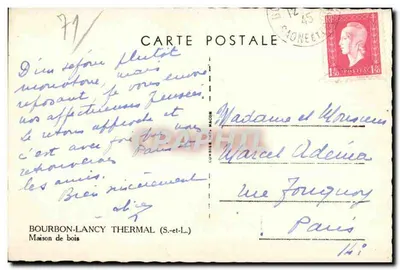 71
CARTE POSTALE
12
45
D'un séjour plutôt
monotone, mais
reposant, je vous envoie
nos affectueuses pensées
le retour approche et
c'est avec joie que nous
Paris et
retrouverons
les amis.
Bien sincèrement
Madame et Monsieur
Marcel Adéma
rue
Paris
BOURBON-LANCY THERMAL (S.-et-L.)
Maison de bois